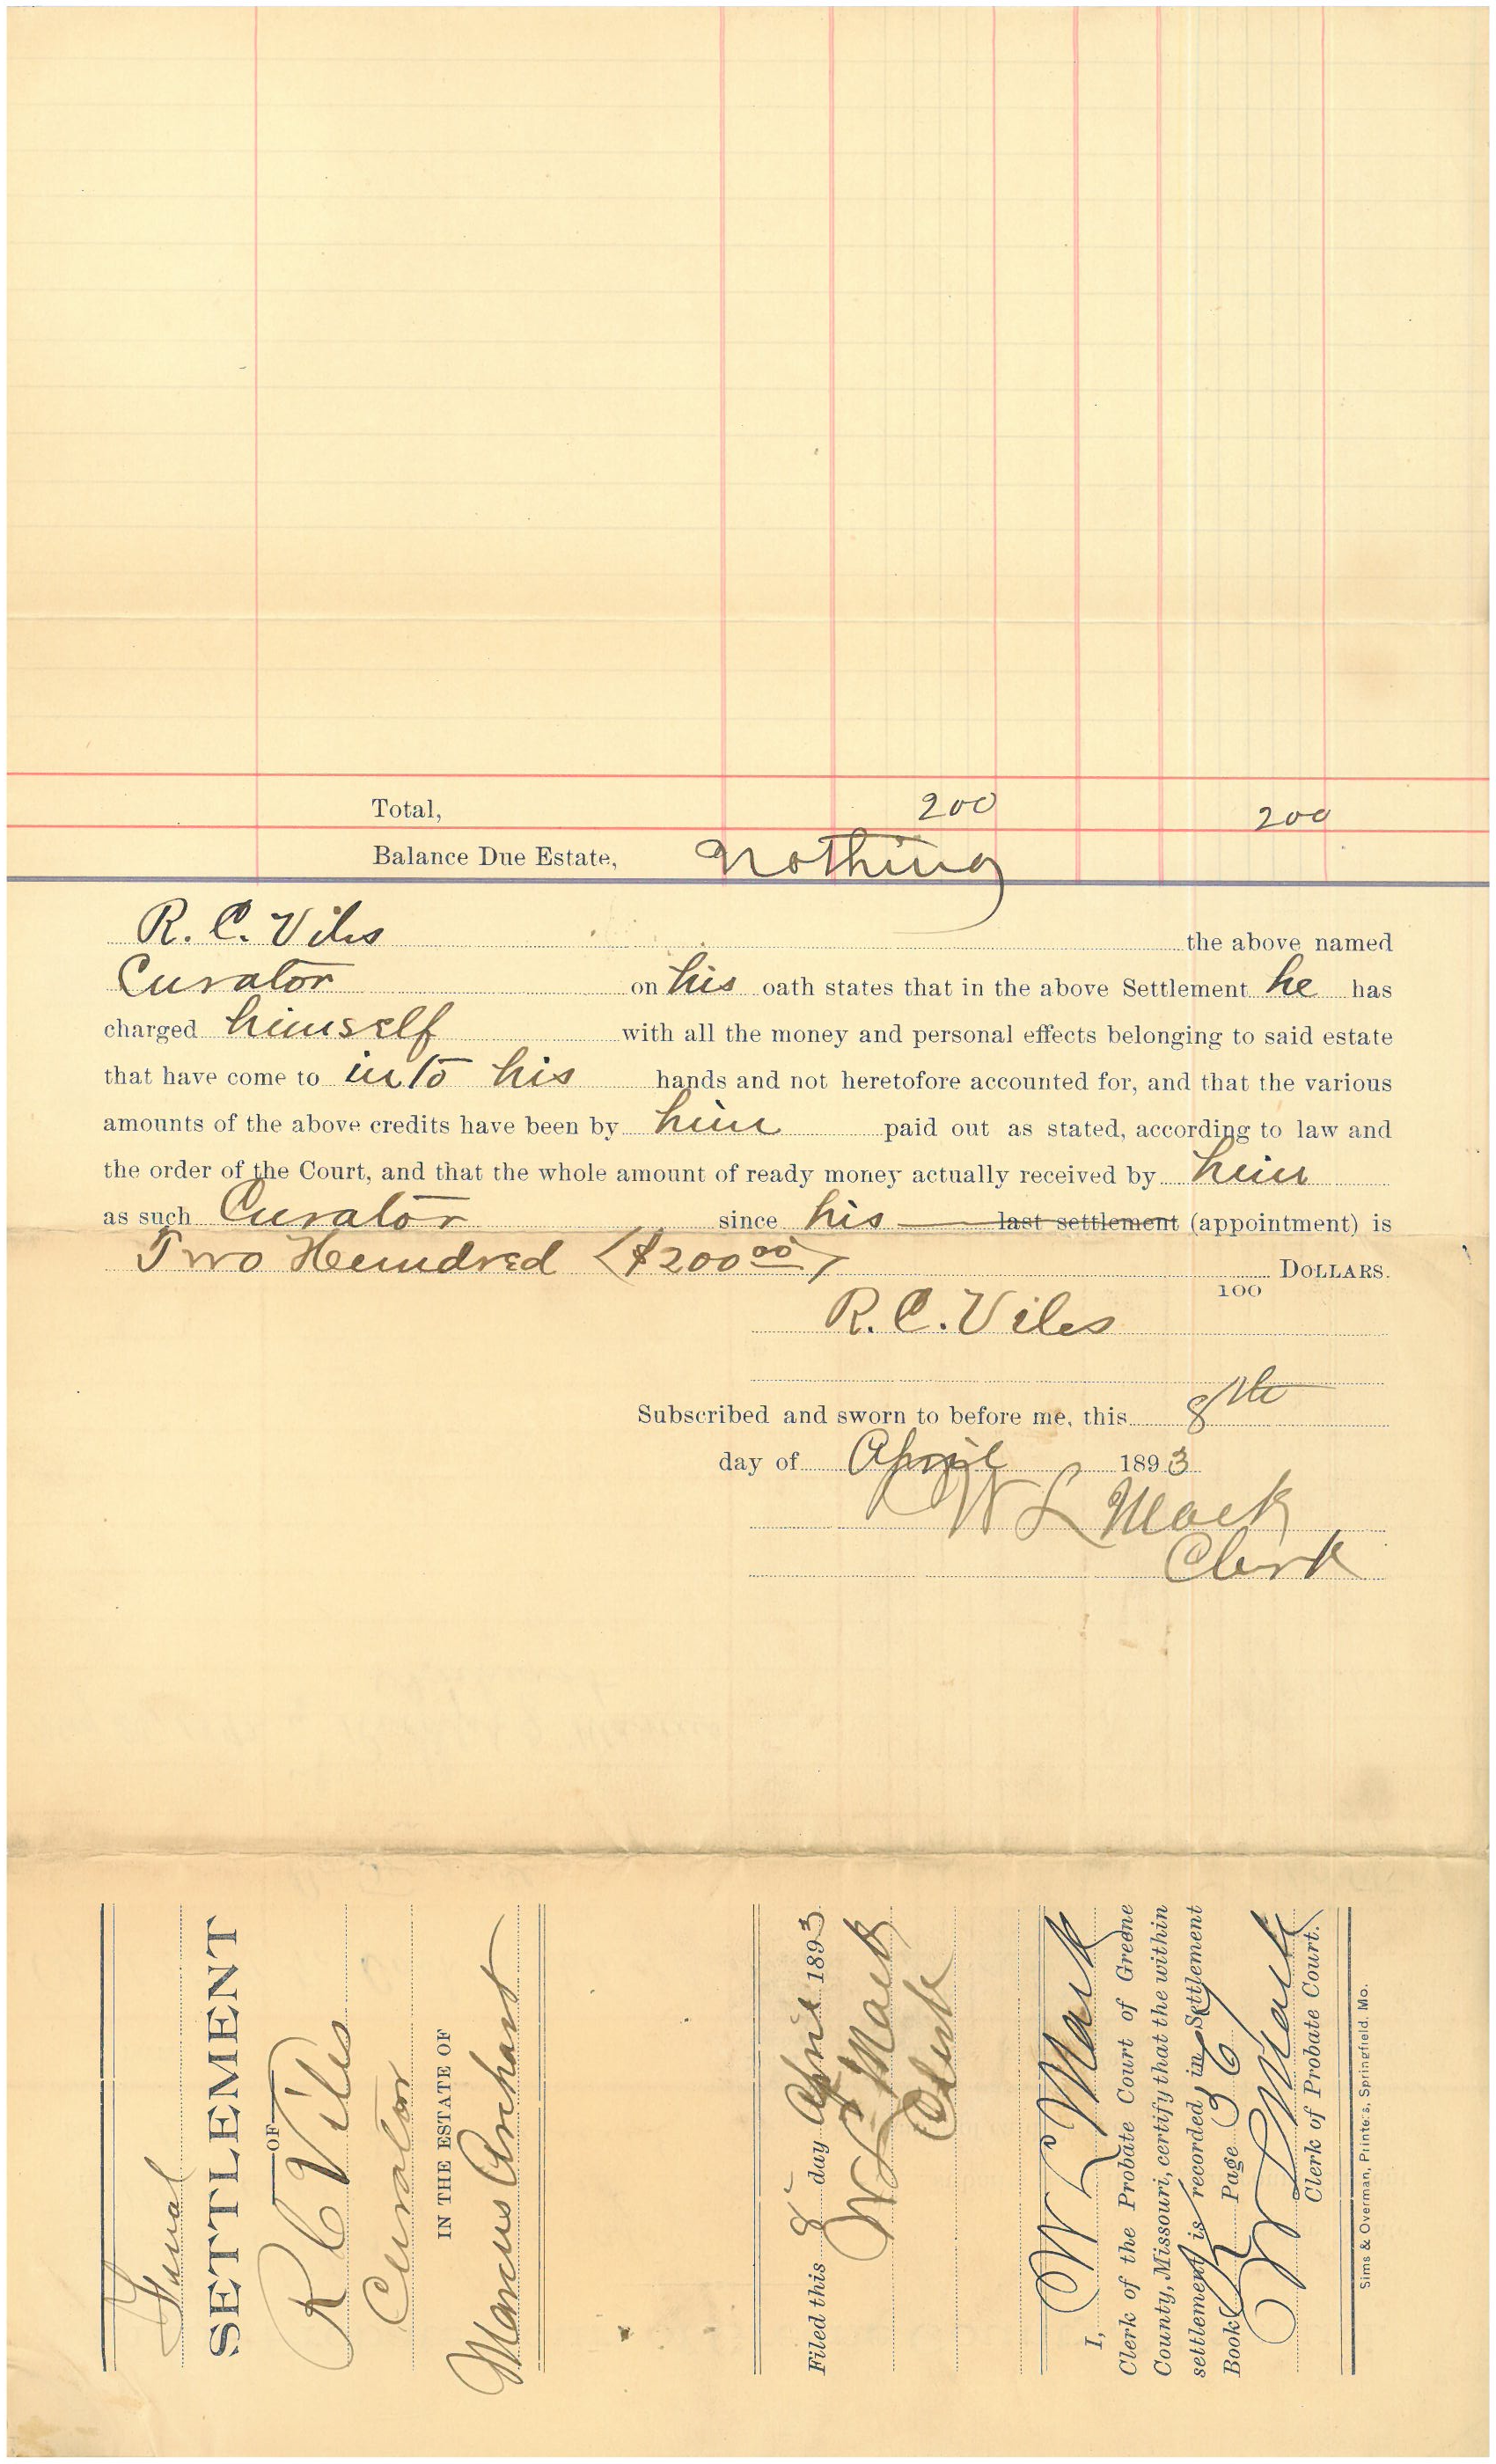 Total, 200 200
Balance Due Estate, Nothing
R. C. Viles the above named
Curator on his oath states that in the above Settlement he has
charged himself with all the money and personal effects belonging to said estate
that have come to into his hands and not heretofore accounted for, and that the various
amounts of the above credits have been by him paid out as stated, according to law and
the order of the Court, and that the whole amount of ready money actually received by him
as such Curator since his last settlement (appointment) is
Two Hundred ($200 00) 100 DOLLARS.
R. C. Viles
Subscribed and sworn to before me, this 8th
day of April 1893
W L Mack
Clerk
Final
SETTLEMENT
OF
R C Viles
Curator
IN THE ESTATE OF
Marcus Archard
Filed this 8 day April 1893
W L Mack
Clerk
I, W L Mack
Clerk of the Probate Court of Greene
County, Missouri, certify that the within
settlement is recorded in Settlement
Book Page 36
W L Mack
Clerk of Probate Court.
Sims & Overman, Printers, Springfield, Mo.